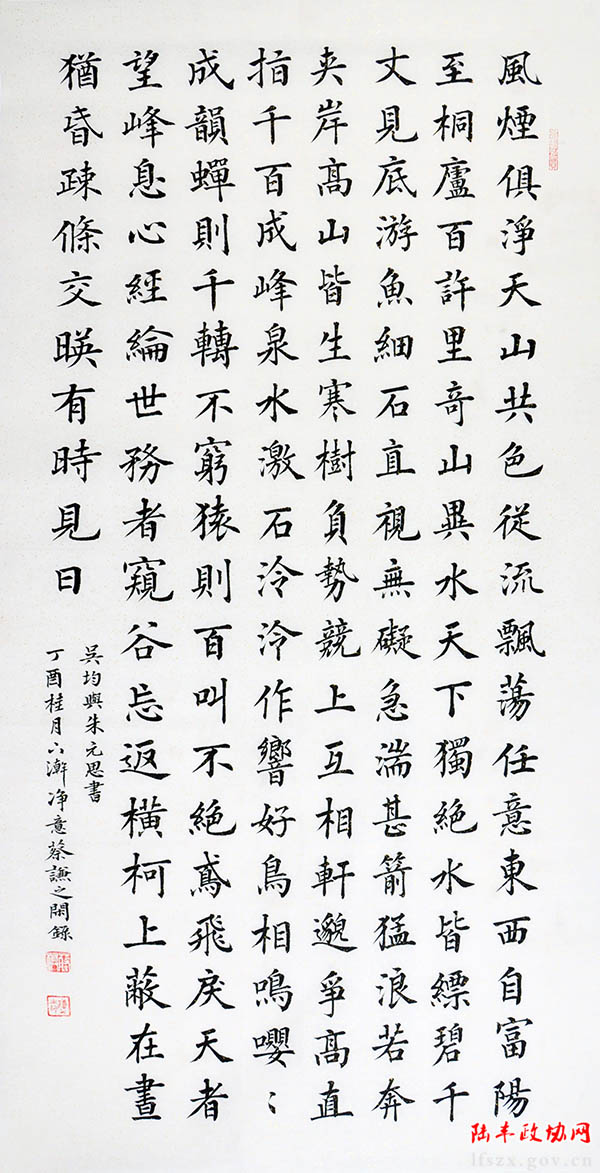 風煙俱淨天山共色從流飄蕩任意東西自富陽
至桐廬百許里奇山異水天下獨絕水皆縹碧千
丈見底游魚細石直視無礙急湍甚箭猛浪若奔
夾岸髙山皆生寒樹負勢競上互相軒邈爭髙直
指千百成峰泉水激石泠泠作響好鳥相鳴嚶〻
成韻蟬則千轉不窮猿則百叫不絕鳶飛戾天者
望峰息心經綸世務者窺谷忘返橫柯上蔽在晝
猶昏疎條交暎有時見日
吳均與朱元思書
丁酉桂月下澣净意蔡謙之閑錄
陆丰政协网
lfszx.gov.cn